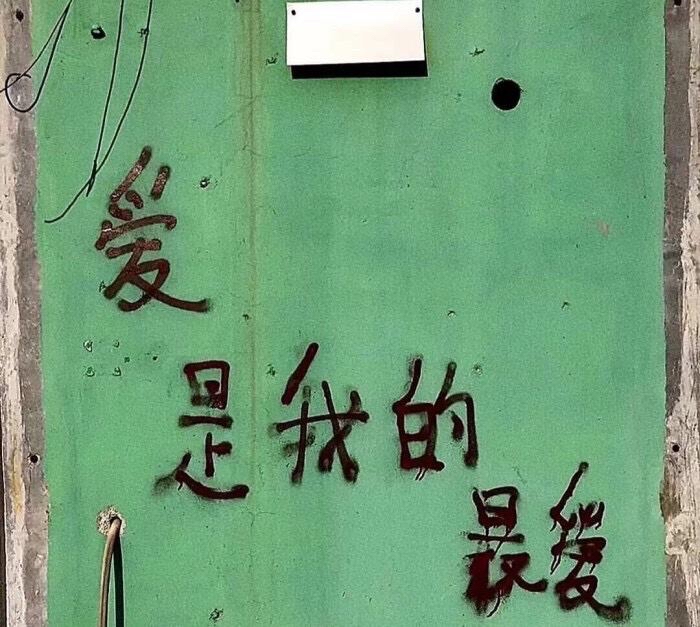 爱
是我的
最爱